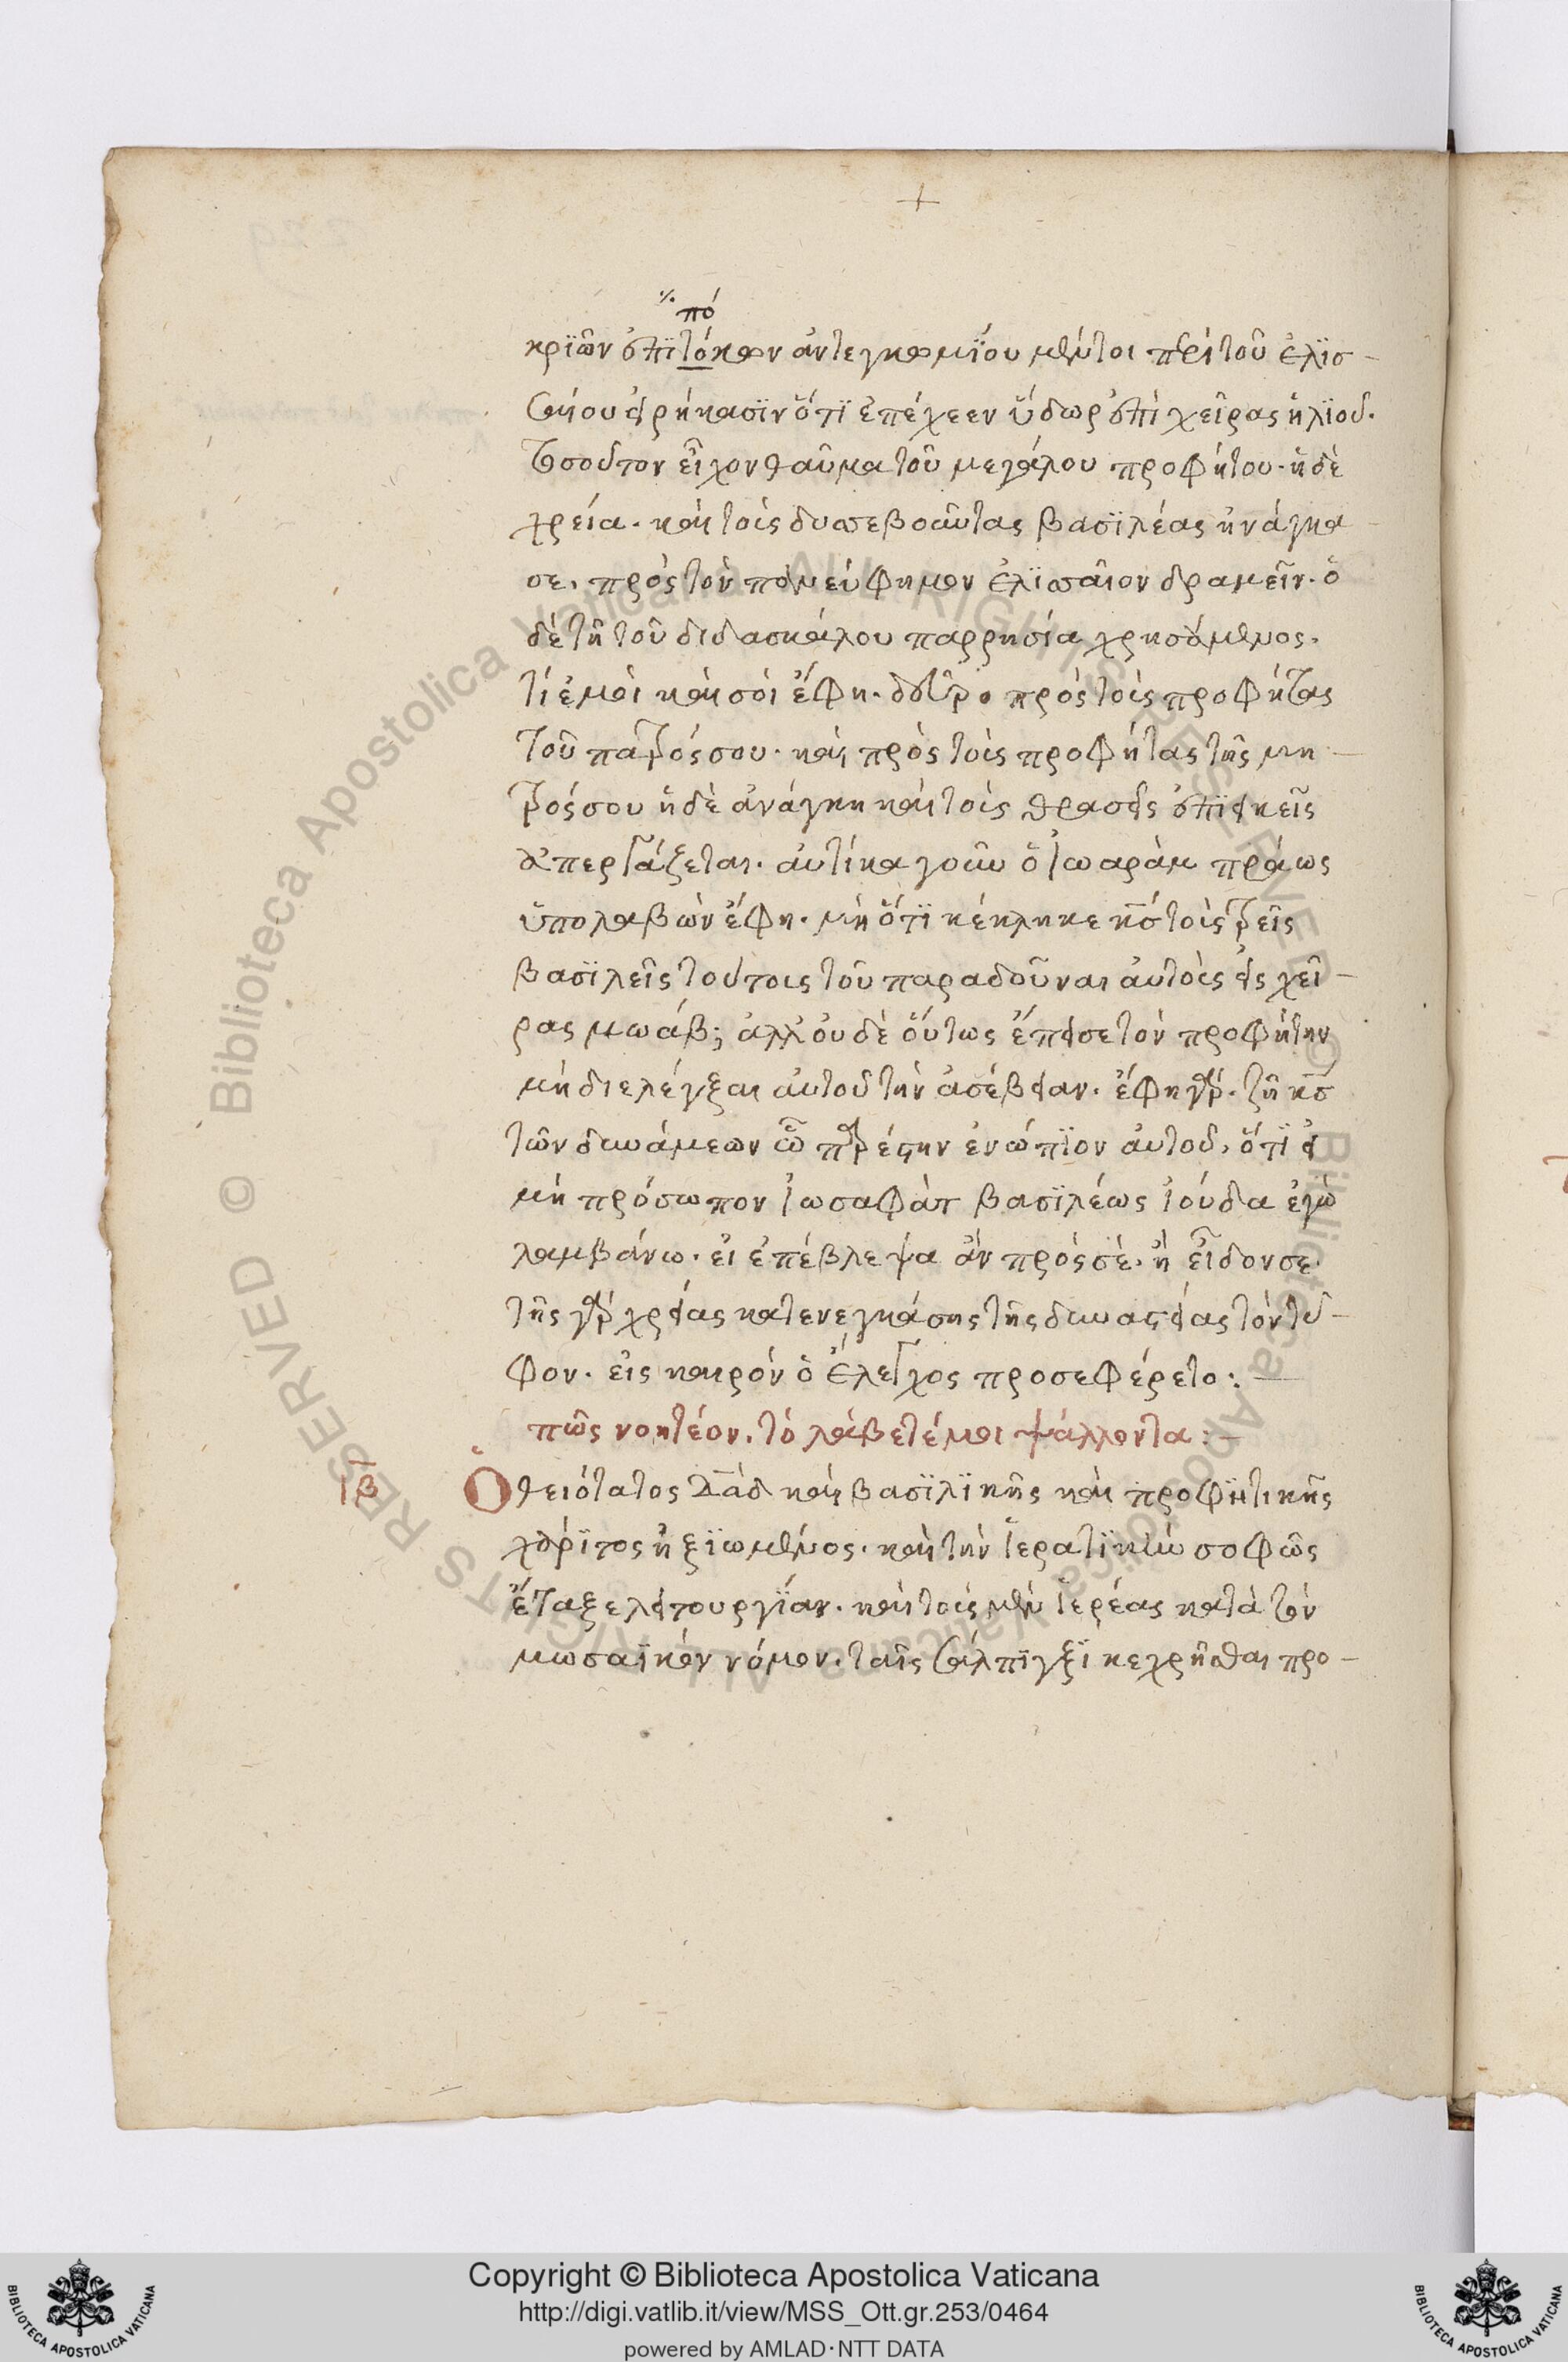 +
πό
κριῶν ἐπϊτόκων ἀντεγκωμΐου μέντοι περὶ τοῦ ἐλϊσ-
σαίου εἰρήκασϊν ὅτϊ ἐπέχεεν ὕδωρ ἐπὶ χεῖρας ἡλϊού.
τοσοῦτον εἶχον θαῦμα τοῦ μεγάλου προφήτου. ἡ δὲ
χρεία. καὶ τοὺς δυσσεβοῦντας βασϊλέας ἠνάγκα
σε. πρὸς τὸν πανεύφημον ἐλϊσσαῖον δραμεῖν. ὁ
δὲ τῆ τοῦ διδασκάλου παρρησία χρησάμενος.
τί ἐμοὶ καὶ σοὶ ἔφη. δεῦρο πρὸς τοὺς προφήτας
τοῦ πατρός σου. καὶ πρὸς τοὺς προφήτας τῆς μη-
τρός σου ἡ δὲ ἀνάγκη καὶ τοὺς θρασεῖς ἐπϊεικεῖς
ἀπεργάζεται. αὐτίκα γοῦν ὁ ἰωαρὰμ πράως
ὑπολαβὼν ἔφη. μὴ ὅτϊ κέκληκε κς τοὺς τρεῖς
βασϊλεῖς τούτους τοῦ παραδοῦναι αὐτοὺς εἰς χεῖ-
ρας μωάβ; ἀλλ' οὐδὲ οὕτως ἔπεισε τὸν προφήτην
μὴ διελέγξαι αὐτοῦ τὴν ἀσέβειαν. ἔφη γάρ. ζῆ κς
τῶν δυνάμεων ὧ παρέστην ἐνώπϊον αὐτοῦ, ὅτϊ εἰ
μὴ πρόσωπον ἰωσαφὰτ βασϊλέως ἰούδα ἐγὼ
λαμβάνω. εἰ ἐπέβλεψα ἂν πρὸς σὲ. ἢ εἶδον σε.
τῆς γὰρ χρείας κατενεγκάσης τῆς δυναστείας τὸν τῦ-
φον. εἰς καιρὸν ὁ ἔλεγχος προσεφέρετο:
πῶς νοητέον. τὸ λάβετέ μοι ψάλλοντα:-
ιβ Ὁ θειότατος δαδ καὶ βασϊλϊκῆς καὶ προφητικῆς
χάρϊτος ἠξϊωμένος. καὶ τὴν ἱερατϊκὴν σοφῶς
ἔταξε λειτουργΐαν. καὶ τοὺς μὲν ἱερέας κατὰ τὸν
μωσαϊκὸν νόμον. ταῖς σάλπϊγξϊ κεχρῆσθαι προ-
Copyright © Biblioteca Apostolica Vaticana
http://digi.vatlib.it/view/MSS_Ott.gr.253/0464
powered by AMLAD·NTT DATA